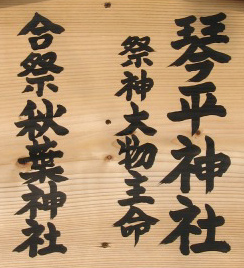 琴平神社
祭神大物主命
合祭秋葉神社